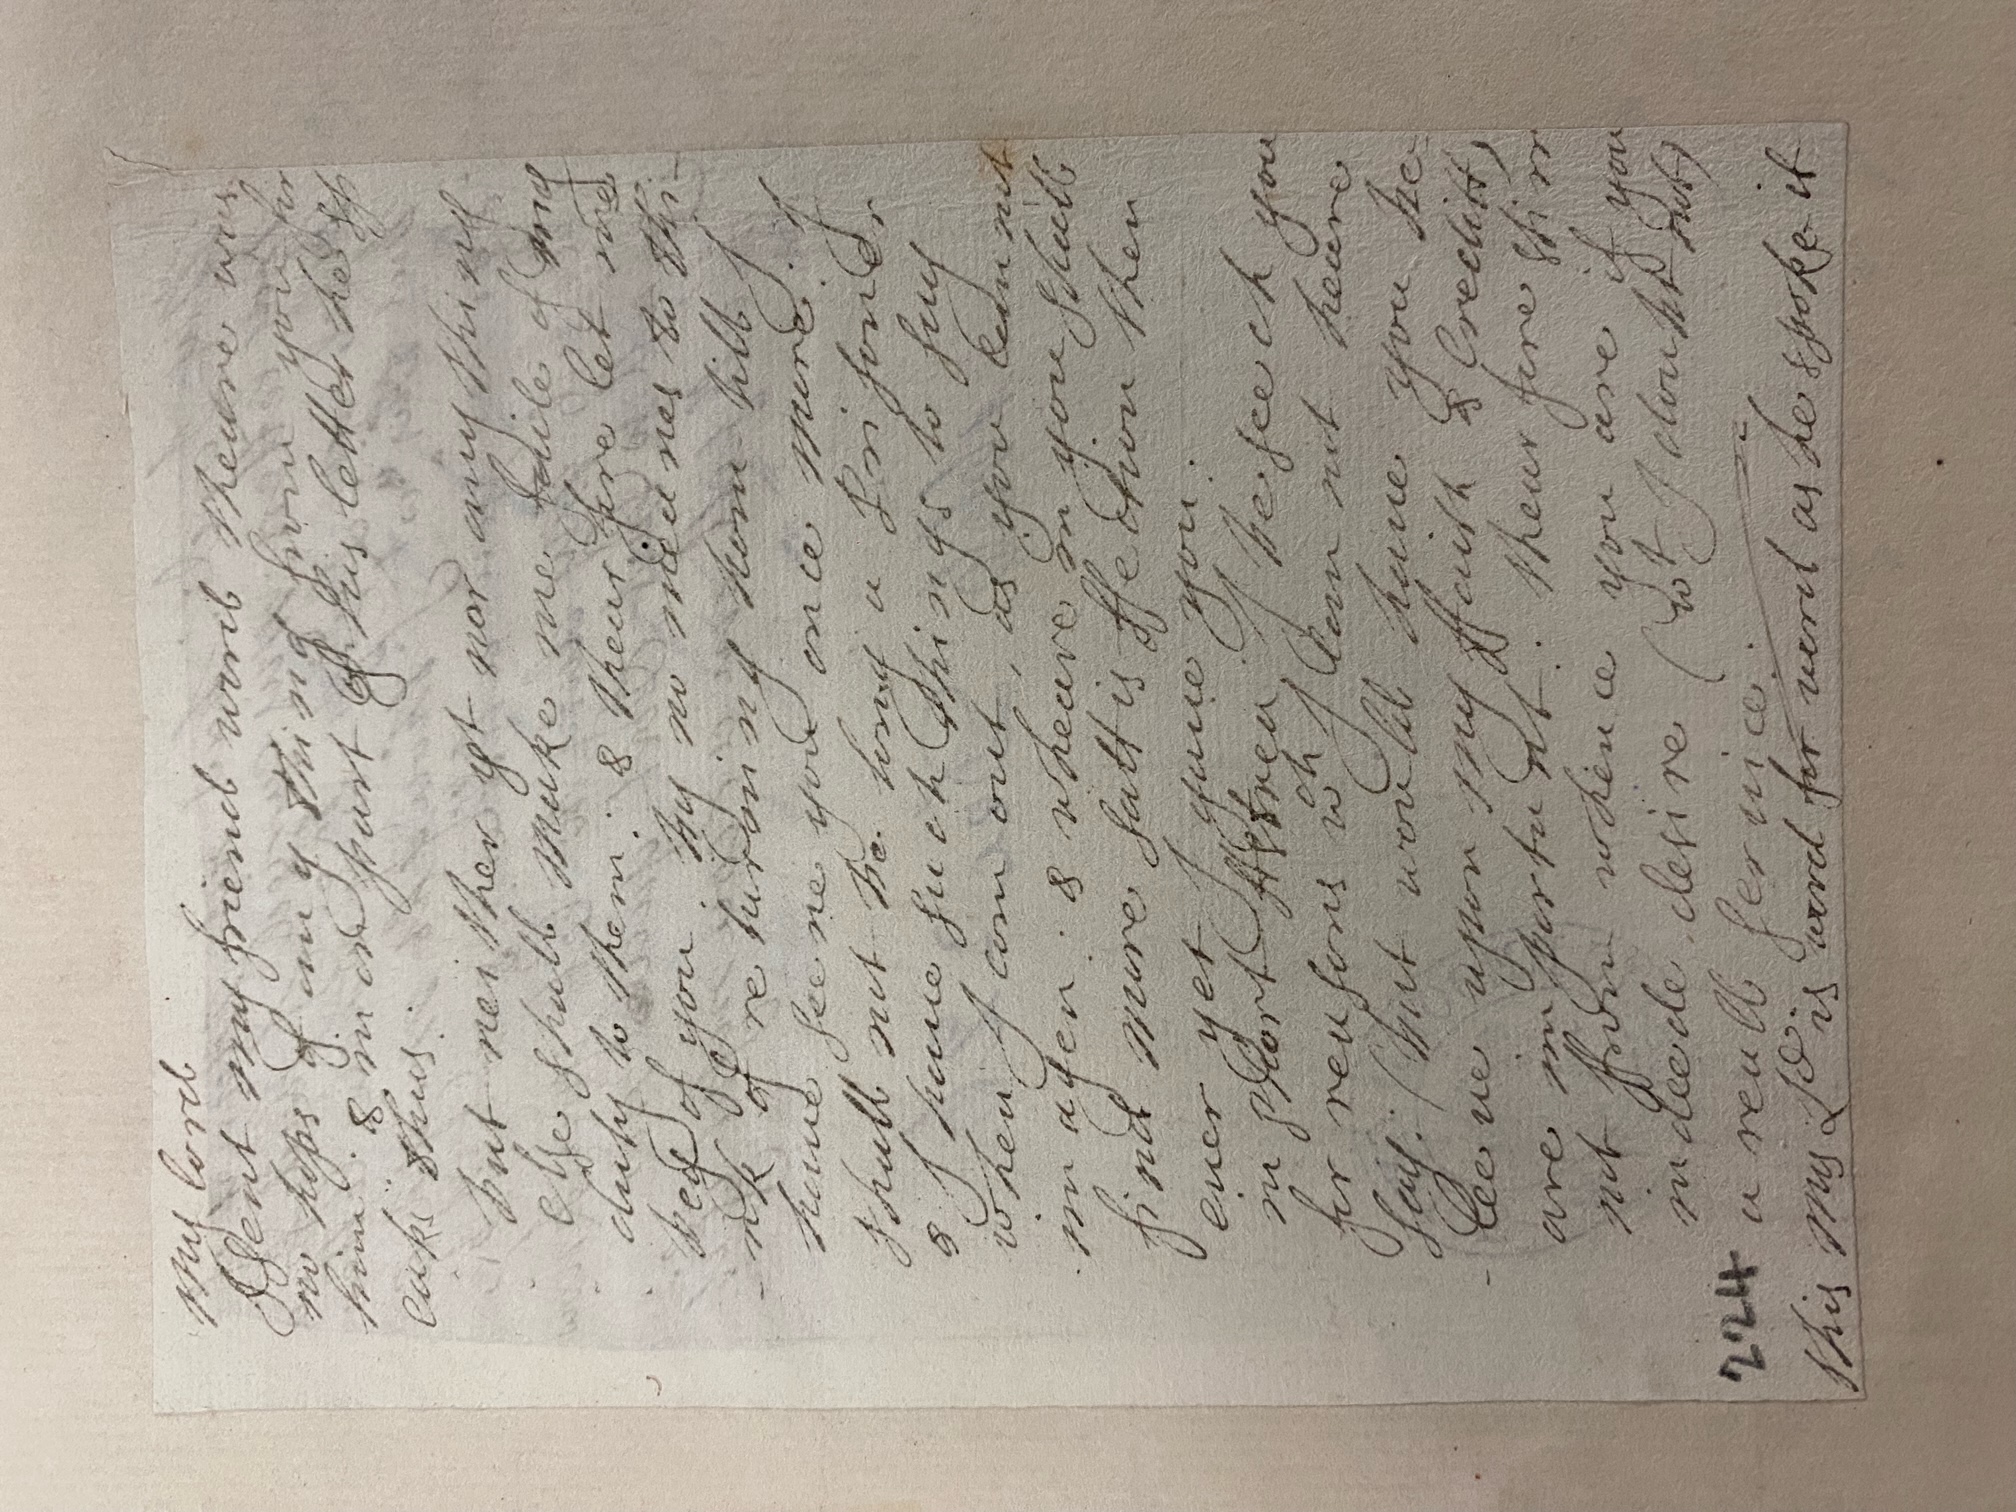 my lord
I sent my friend word theare was
no hops of any thing from you for
him. & in on part of his letter he sp
eaks thus.
but neither yt nor any thing
else shall make me faile of my
duty to them. & thear fore let me
bege of you by no meanes to thi-
nk of returning home till I
have seene you once more. I
shall not be long a prisoner
& I have such things to say
when I com out, as you can nt
imagen. & wheare in you shall
find more sattisffection then
ever yet I gave you.
in short I beseech you
for reasons wch I can not heare
say. (but would have you be-
leeve upon my ffaith & Creditt)
are importa nt. thear fore stirr
not from whence you are if you
indeede desire (wt I doubt not)
a reall service.
224
this my Ld is word for word as he spoke it